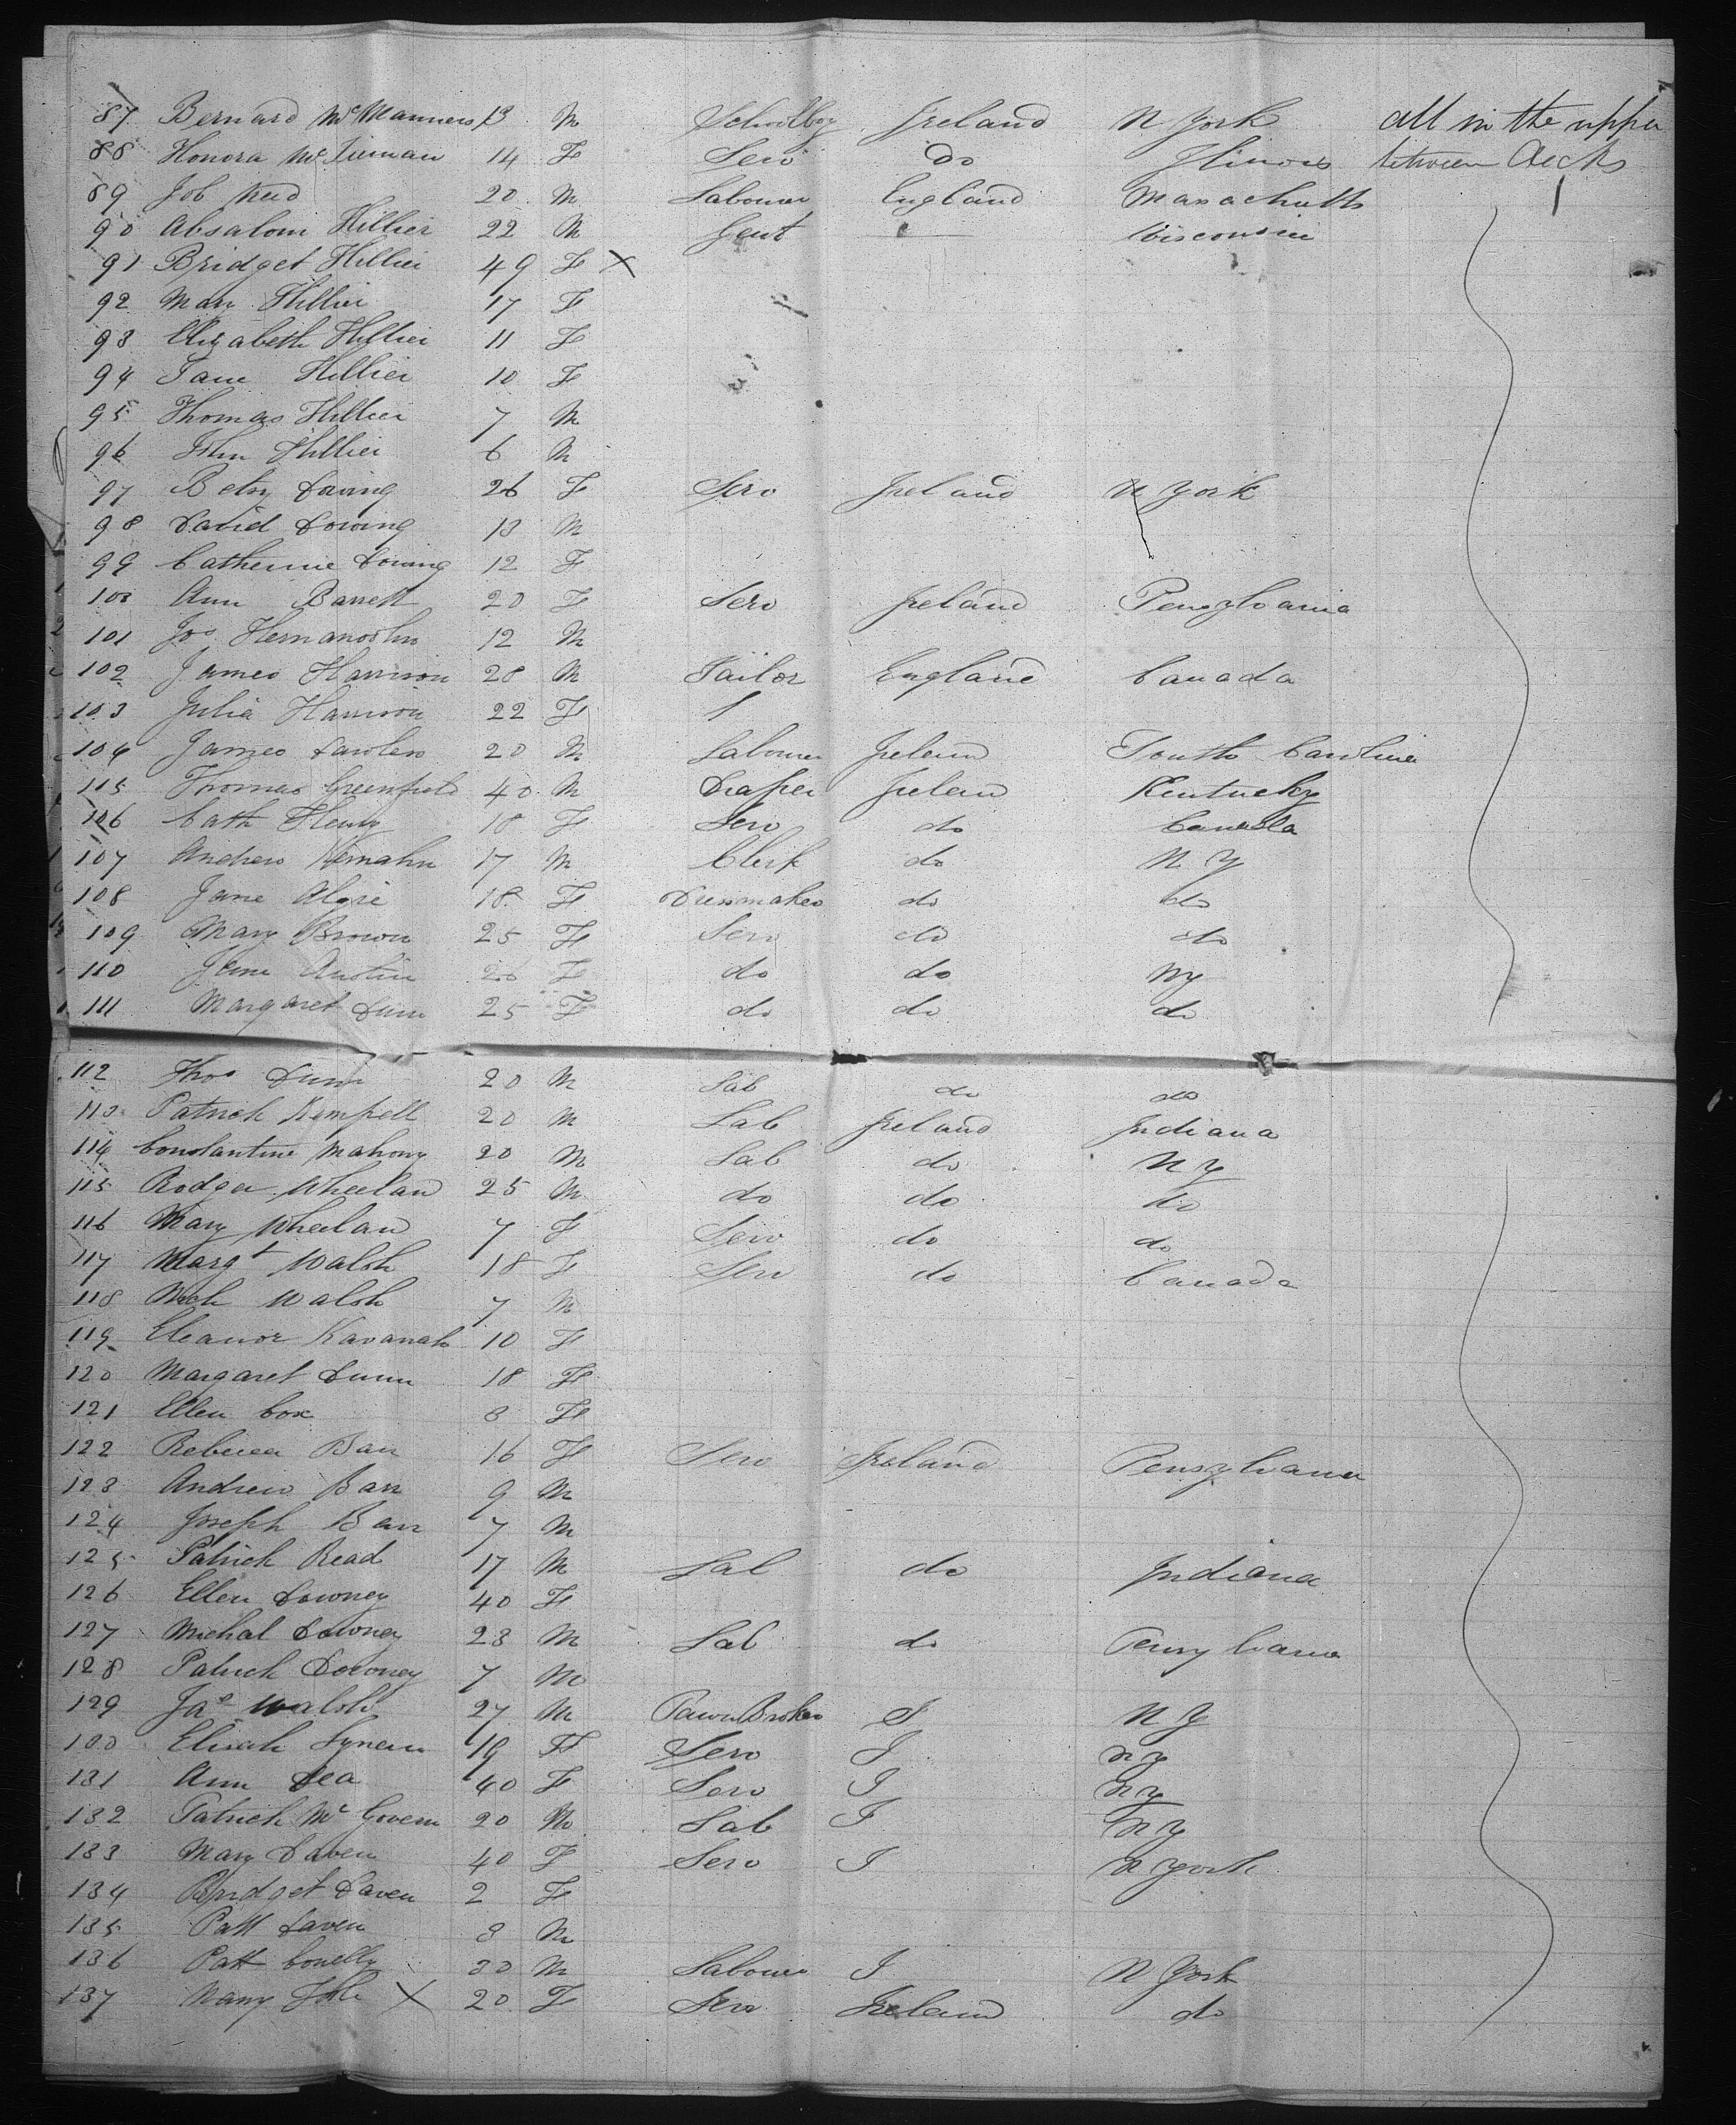 87 Bernard McManners 13 M Schoolboy Ireland N York all in the upper
88 Honora McTiernan 14 F Serv Do Ilinois between decks
89 Job 20 M Labourer England Masachutts
90 Absalom Hillier 22 M Gent Wisconsin
91 Bridget Hillier 49 F X
92 Mary Hillier 17 F
93 Elizabeth Hillier 11 F
94 Jane Hillier 10 F
95 Thomas Hillier 7 M
96 John Hillier 6 M
97 Betsy 26 F Serv Ireland N York
98 David Dowing 13 M
99 Catherine Dowing 12 F
100 Ann Barrett 20 F Serv Ireland Pensylvania
101 Jos 12 M
102 James Harrison 28 M Tailor England Canada
103 Julia Harrison 22 F
104 James 20 M Labourer Ireland South Carolina
115 Thomas Greenfield 40 M Draper Ireland Kentucky
106 Cath Henry 18 F Serv do Canada
107 Andrew 17 M Clerk do N Y
108 Jane 18 F Dressmaker do do
109 Mary Brown 25 F Serv do do
110 Jane Austin 26 F do do NY
111 Margaret Dunn 25 F do do do
112 Thos Dunn 20 M Lab do do
113 Patrick Kempell 20 M Lab Ireland Indiana
114 Constantine Mahony 20 M Lab do N Y
115 Rodger Wheelan 25 M do do do
116 Mary Wheelan 7 F Serv do do
117 Margt Walsh 18 F Serv do Canada
118 Mich Walsh 7 M
119 Eleanor Kavanah 10 F
120 Margaret Dunn 18 F
121 Ellen Cox 8 F
122 Rebecca Barr 16 F Serv Ireland Pensylvania
123 Andrew Barr 9 M
124 Joseph Barr 7 M
125 Patrick Read 17 M Lab do Indiana
126 Ellen Downey 40 F
127 Michal Downey 23 M Lab do Pensylvania
128 Patrick Downey 7 M
129 Jas Walsh 27 M PawnBroker I N Y
130 19 F Serv I N Y
131 Ann Dea 40 F Serv I N Y
132 Patrick McGovern 20 M Lab I N Y
133 Mary Daven 40 F Serv I N York
134 Bridget Daven 2 F
135 Patt Daven 3 M
136 Patt Conelly 30 M Labourer I N York
137 X 20 F Serv Ireland do